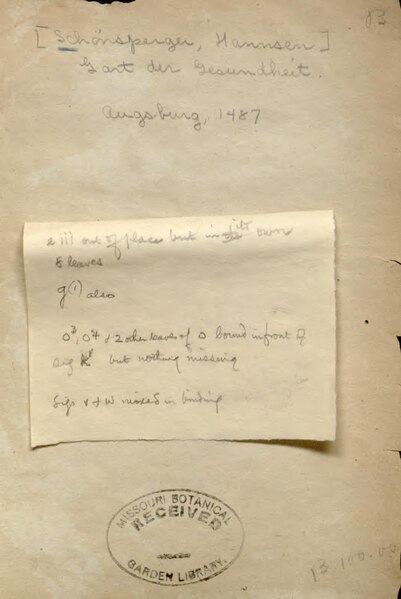 83
[Schönsperger, Hannsen]
Gart der Gesundheit.
Augsburg, 1487
e iii out of place but in its own
8 leaves
g(1) also
o3, o4 & 2 other leaves of o bound in front of
sig but nothing missing
Sigs v & w mixed in binding
MISSOURI BOTANICAL
RECEIVED
GARDEN LIBRARY.